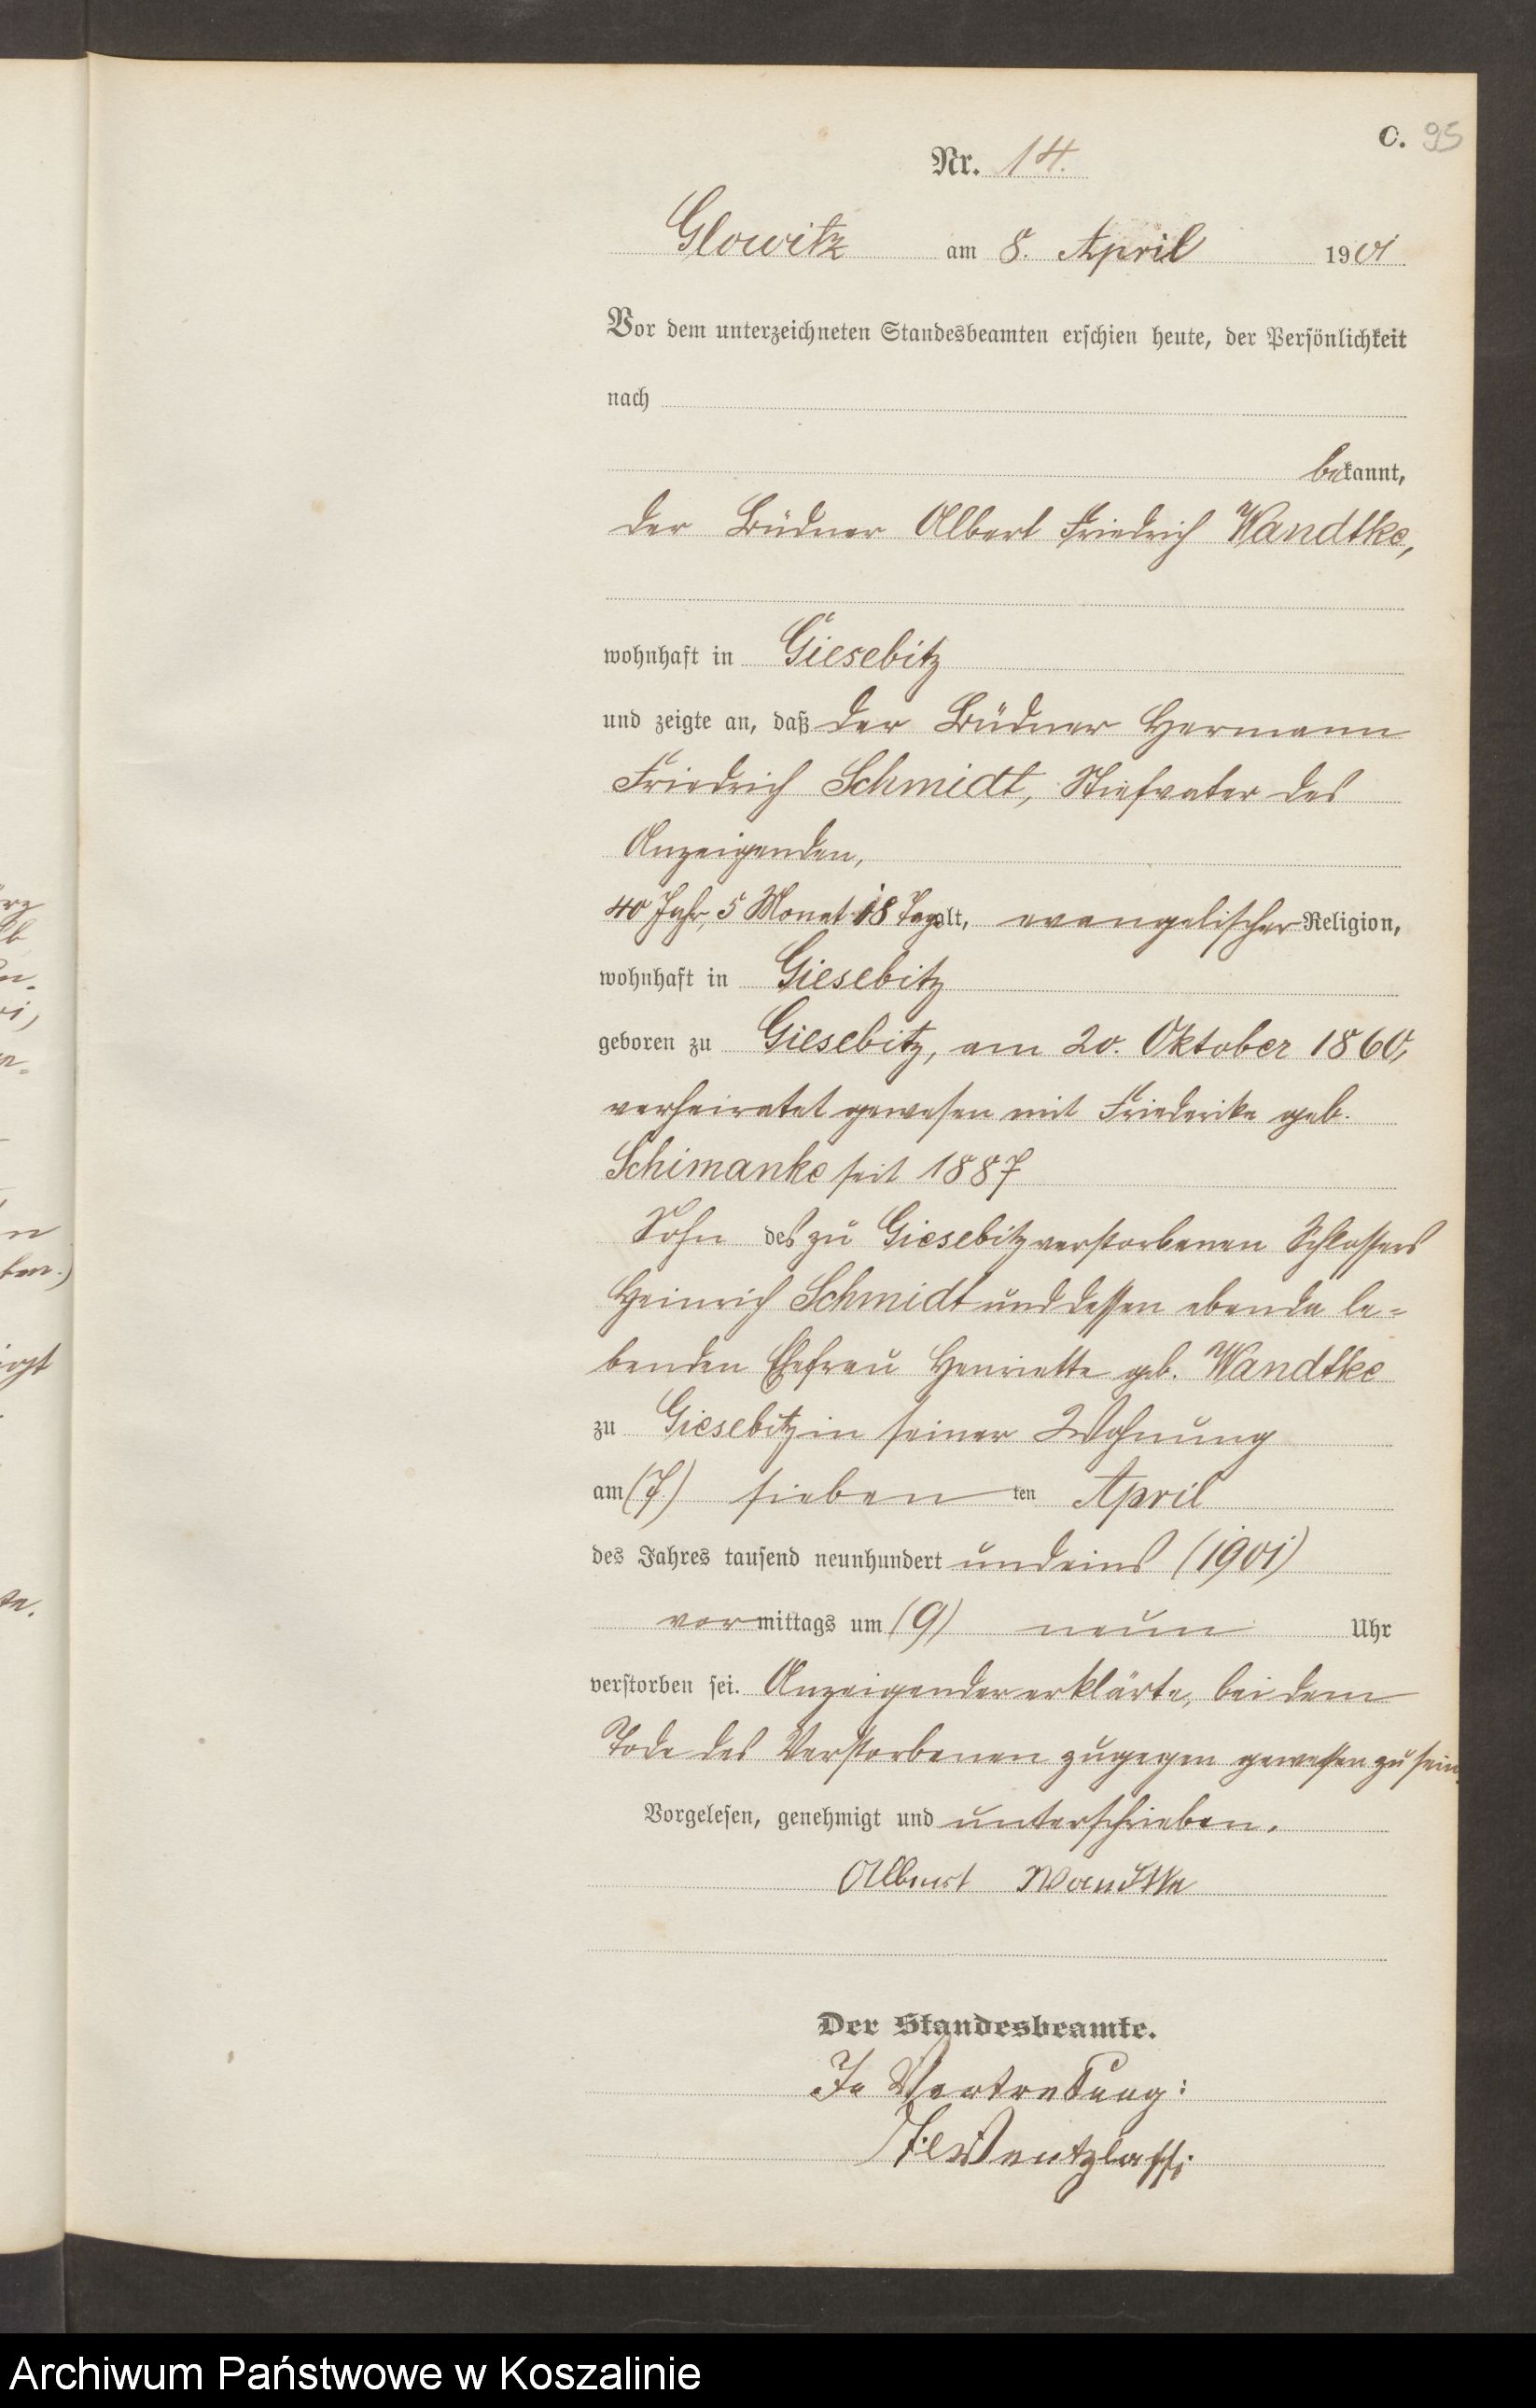 C. 95
Nr. 14.
Glowitz am 8. April 1901
Vor dem unterzeichneten Standesbeamten erschien heute, der Persönlichkeit
nach
bekannt,
der Büdner Albert Friedrich Wandtke,
wohnhaft in Giesebitz
und zeigte an, daß der Büdner Hermann
Friedrich Schmidt, Stiefvater des
Anzeigenden,
40 Jahr, 5 Monat 18 Tage alt, evangelischer Religion,
wohnhaft in Giesebitz
geboren zu Giesebitz, am 20. Oktober 1860,
verheiratet gewesen mit Friederike geb.
Schimanke seit 1887
Sohn des zu Giesebitz verstorbenen Schlossers
Heinrich Schmidt und dessen ebenda le=
benden Ehefrau Henriette geb. Wandtke
zu Giesebitz in seiner Wohnung
am (7) sieben ten April
des Jahres tausend neunhundert und eins (1901)
vormittags um (9) neun Uhr
verstorben sei. Anzeigender erklärte, bei dem
Tode des Verstorbenen zugegen gewesen zu sein.
Vorgelesen, genehmigt und unterschrieben.
Albert Wandtke
Der Standesbeamte.
In Vertretung:
Wentzlaff.
Archiwum Państwowe w Koszalinie